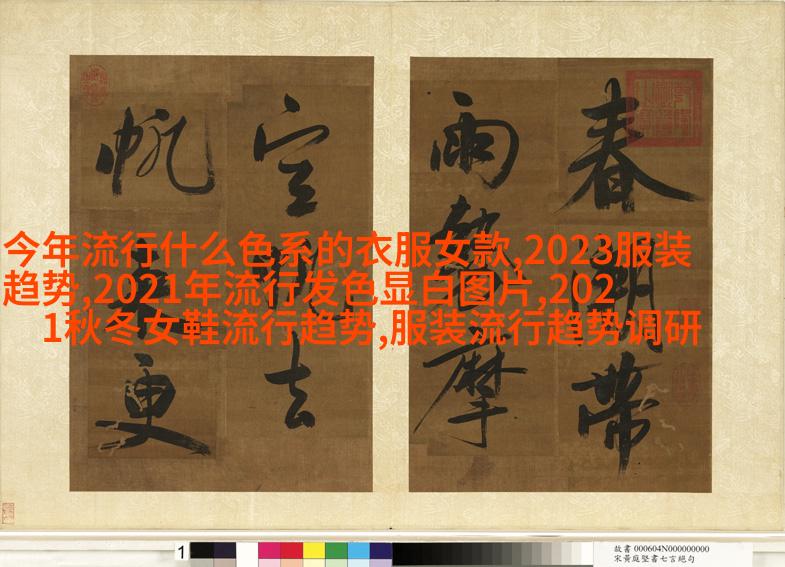 今年流行什么色系的衣服女款,2023服装
趋势,2021年流行发色显白图片,202
1秋冬女鞋流行趋势,服装流行趋势调研
春潮帶
雨摩
空去
帆更
1
故書 000604N000000000
宋黃庭堅書七言絕句